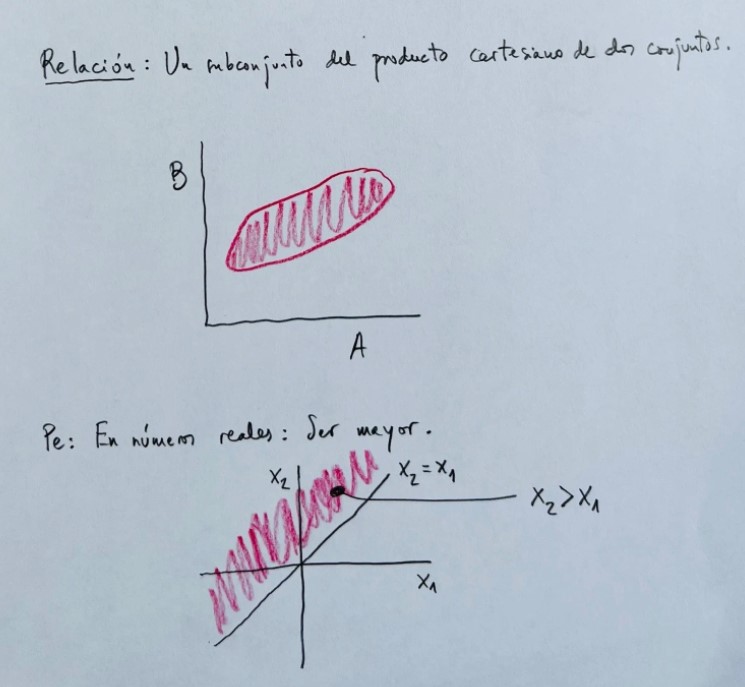 Relación: Un subconjunto del producto cartesiano de dos conjuntos.
B
A
Pe: En números reales: Ser mayor.
X₂
X₂ = X₁
X₂ > X₁
X₁